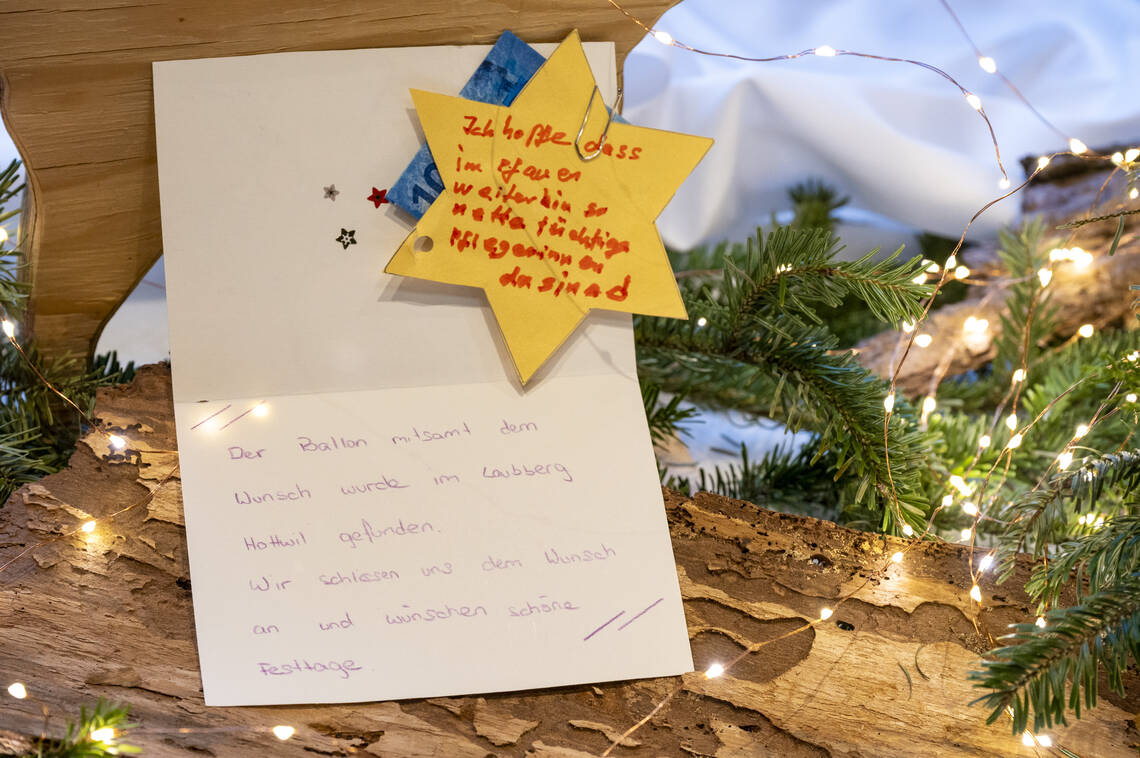 10
Ich hoffe dass
im Pfauen
weiterhin so
nette tüchtige
Pflegerinnen
da sind
Der Ballon mitsamt dem
Wunsch wurde im Laubberg
Hottwil gefunden.
Wir schliessen uns dem Wunsch
an und wünschen schöne
Festtage.